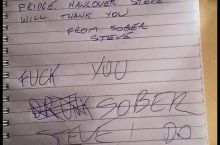 FRIDGE HANGOVER STEVE
WILL THANK YOU
FROM SOBER
STEVE
FUCK YOU
DRUNK SOBER
STEVE! DO